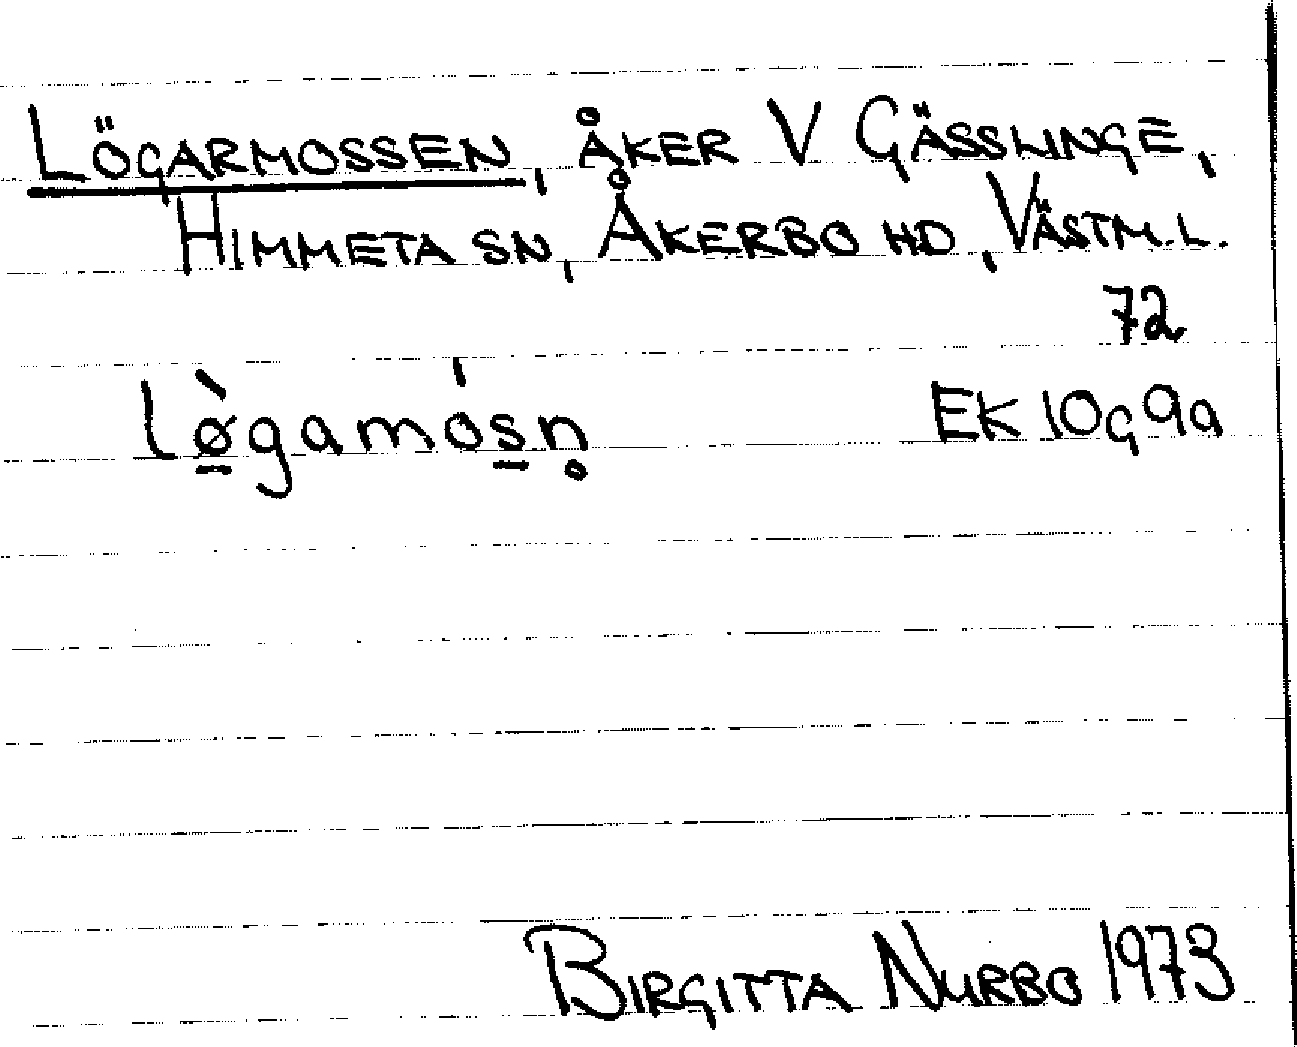 LÖGARMOSSEN, ÅKER V GÄSSLINGE,
HIMMETA SN, ÅKERBO HD, VÄSTM.L.
72
lø̠̀gamós̠n̥ EK 10g9a
BIRGITTA NURBO 1973